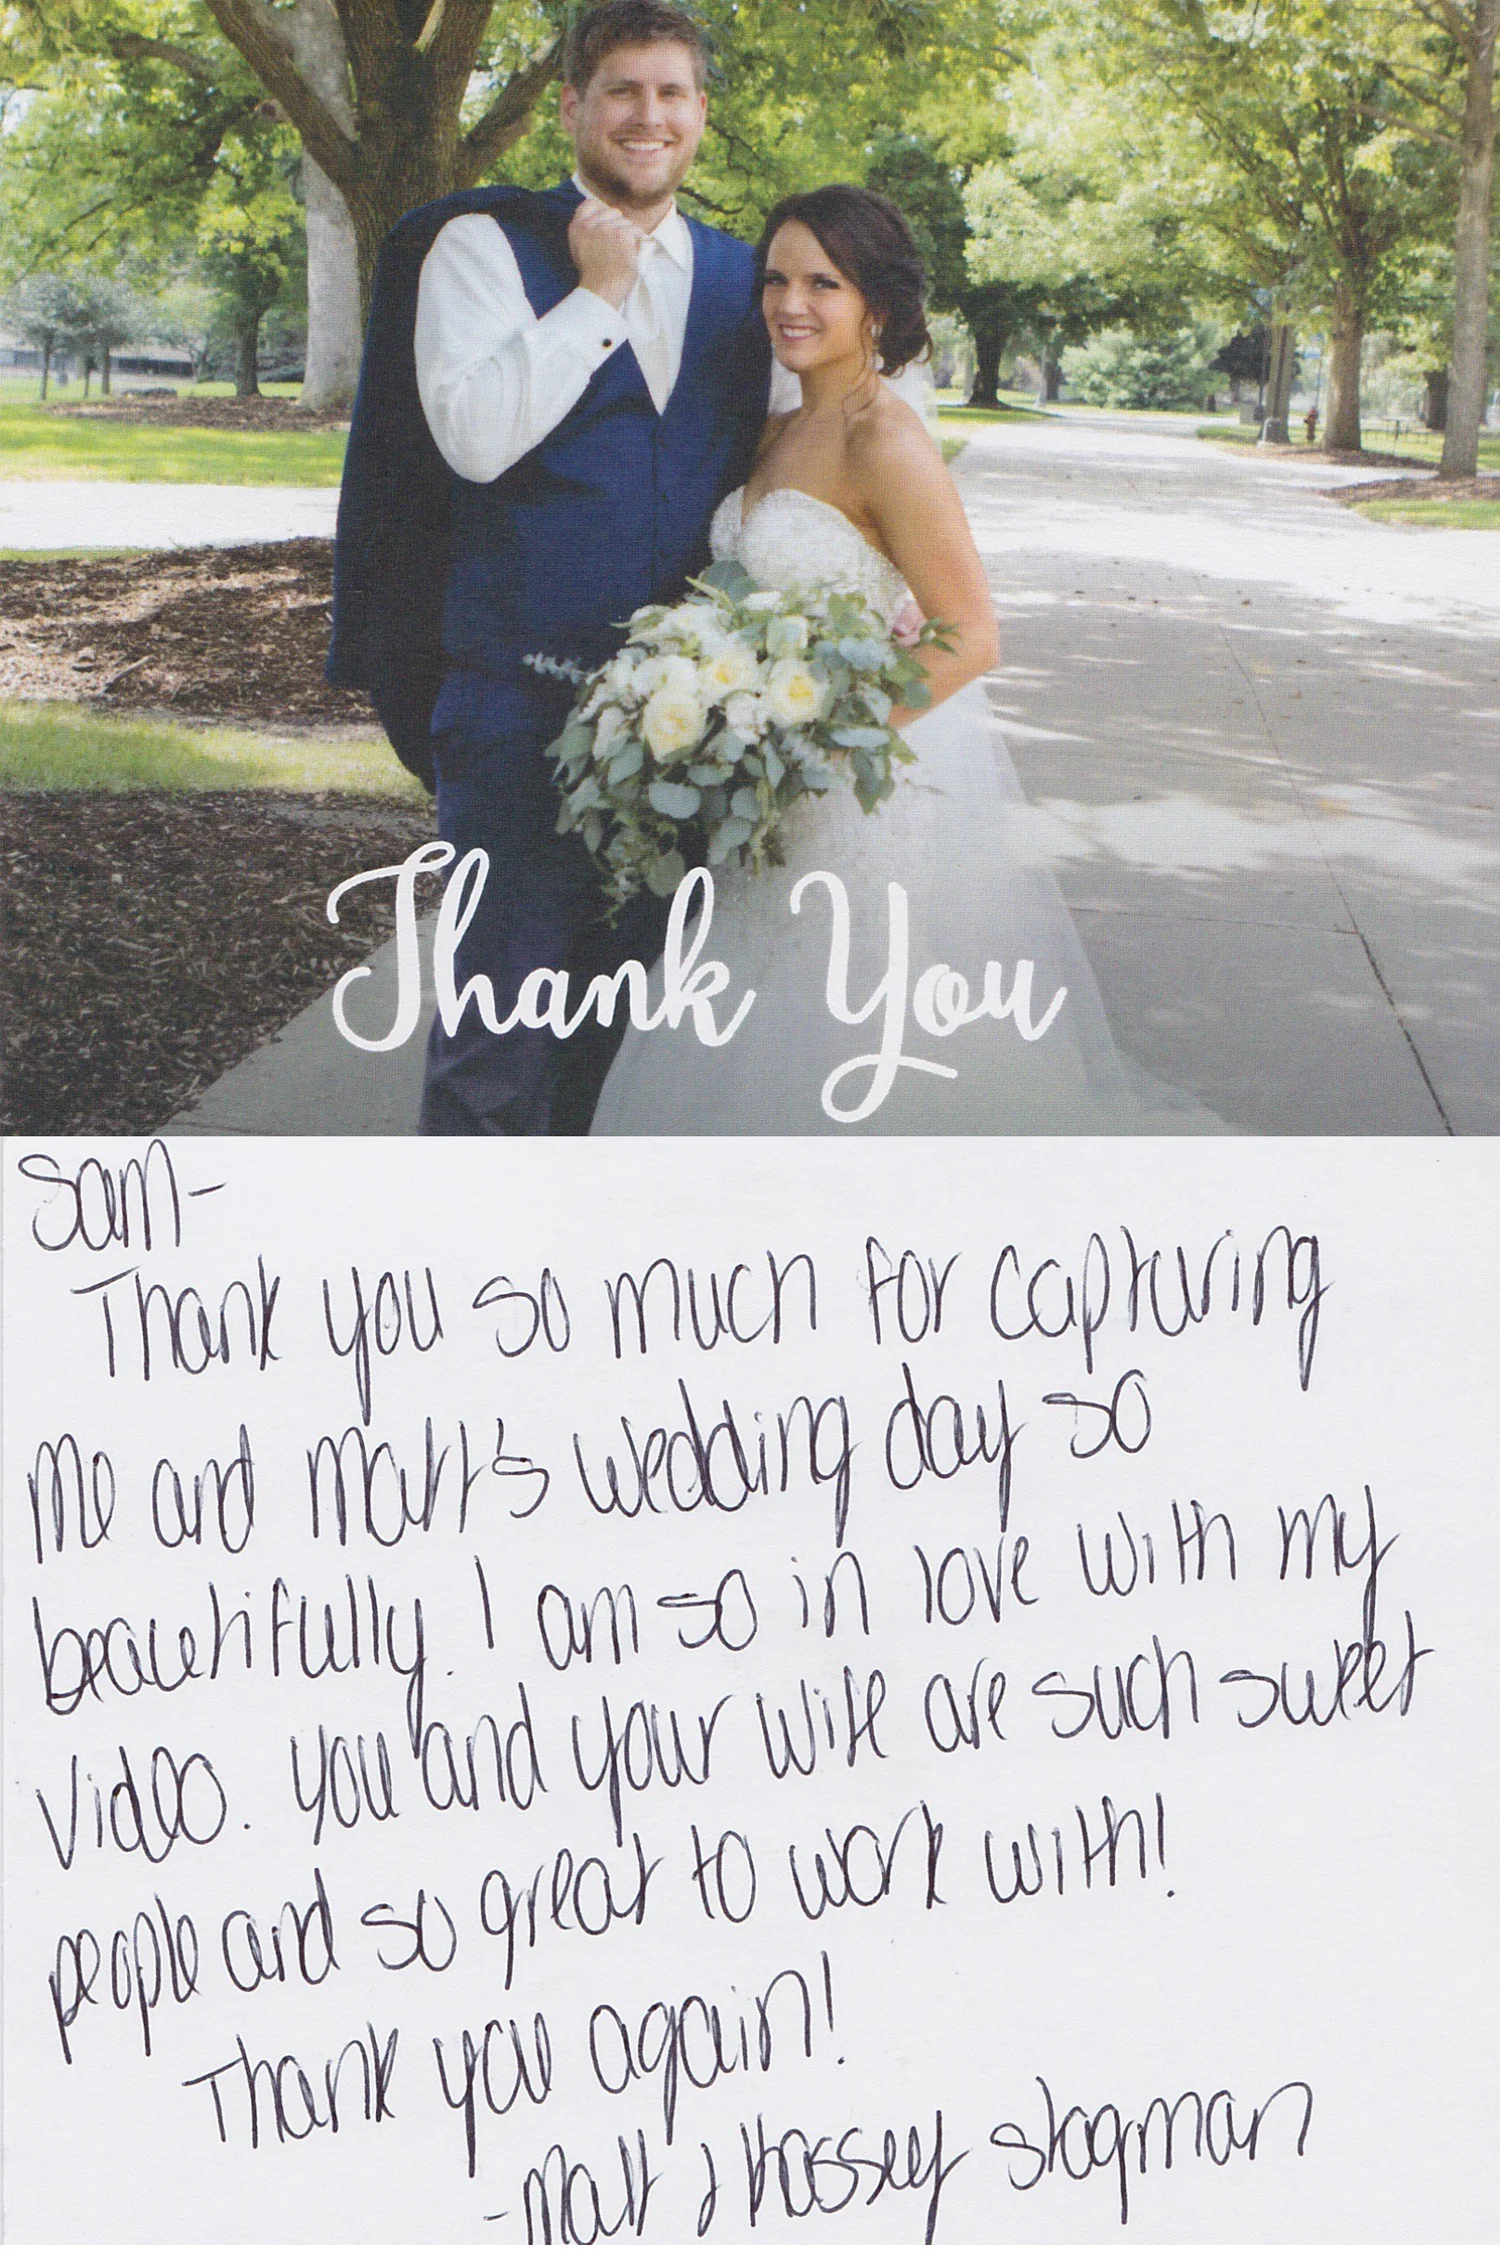 Thank You
Sam-
Thank you so much for capturing
me and Matt's wedding day so
beautifully. I am so in love with my
video. You and your wife are such sweet
people and so great to work with!
Thank you again!
-Matt & Kassey Stagman